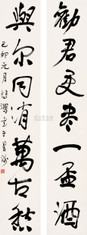 勸君更盡一盃酒
與尔同消萬古愁
己卯元月